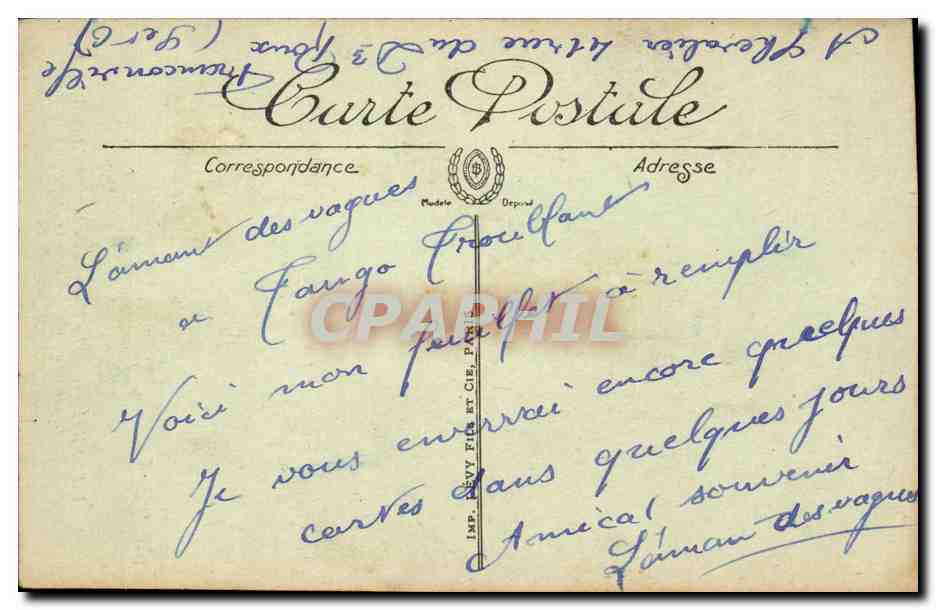 A Chevalier 41 rue du Dr
Roux (Ser C)
Franconville
Carte Postale
Correspondance
Adresse
Modèle Déposé
L'amant des vagues
a Tango Troublant
Voici mon feuillet à remplir
Je vous enverrai encore quelques
cartes dans quelques jours
Amical souvenir
L'aman des vagues
IMP. LÉVY FILS ET CIE, PARIS
CPAPHIL